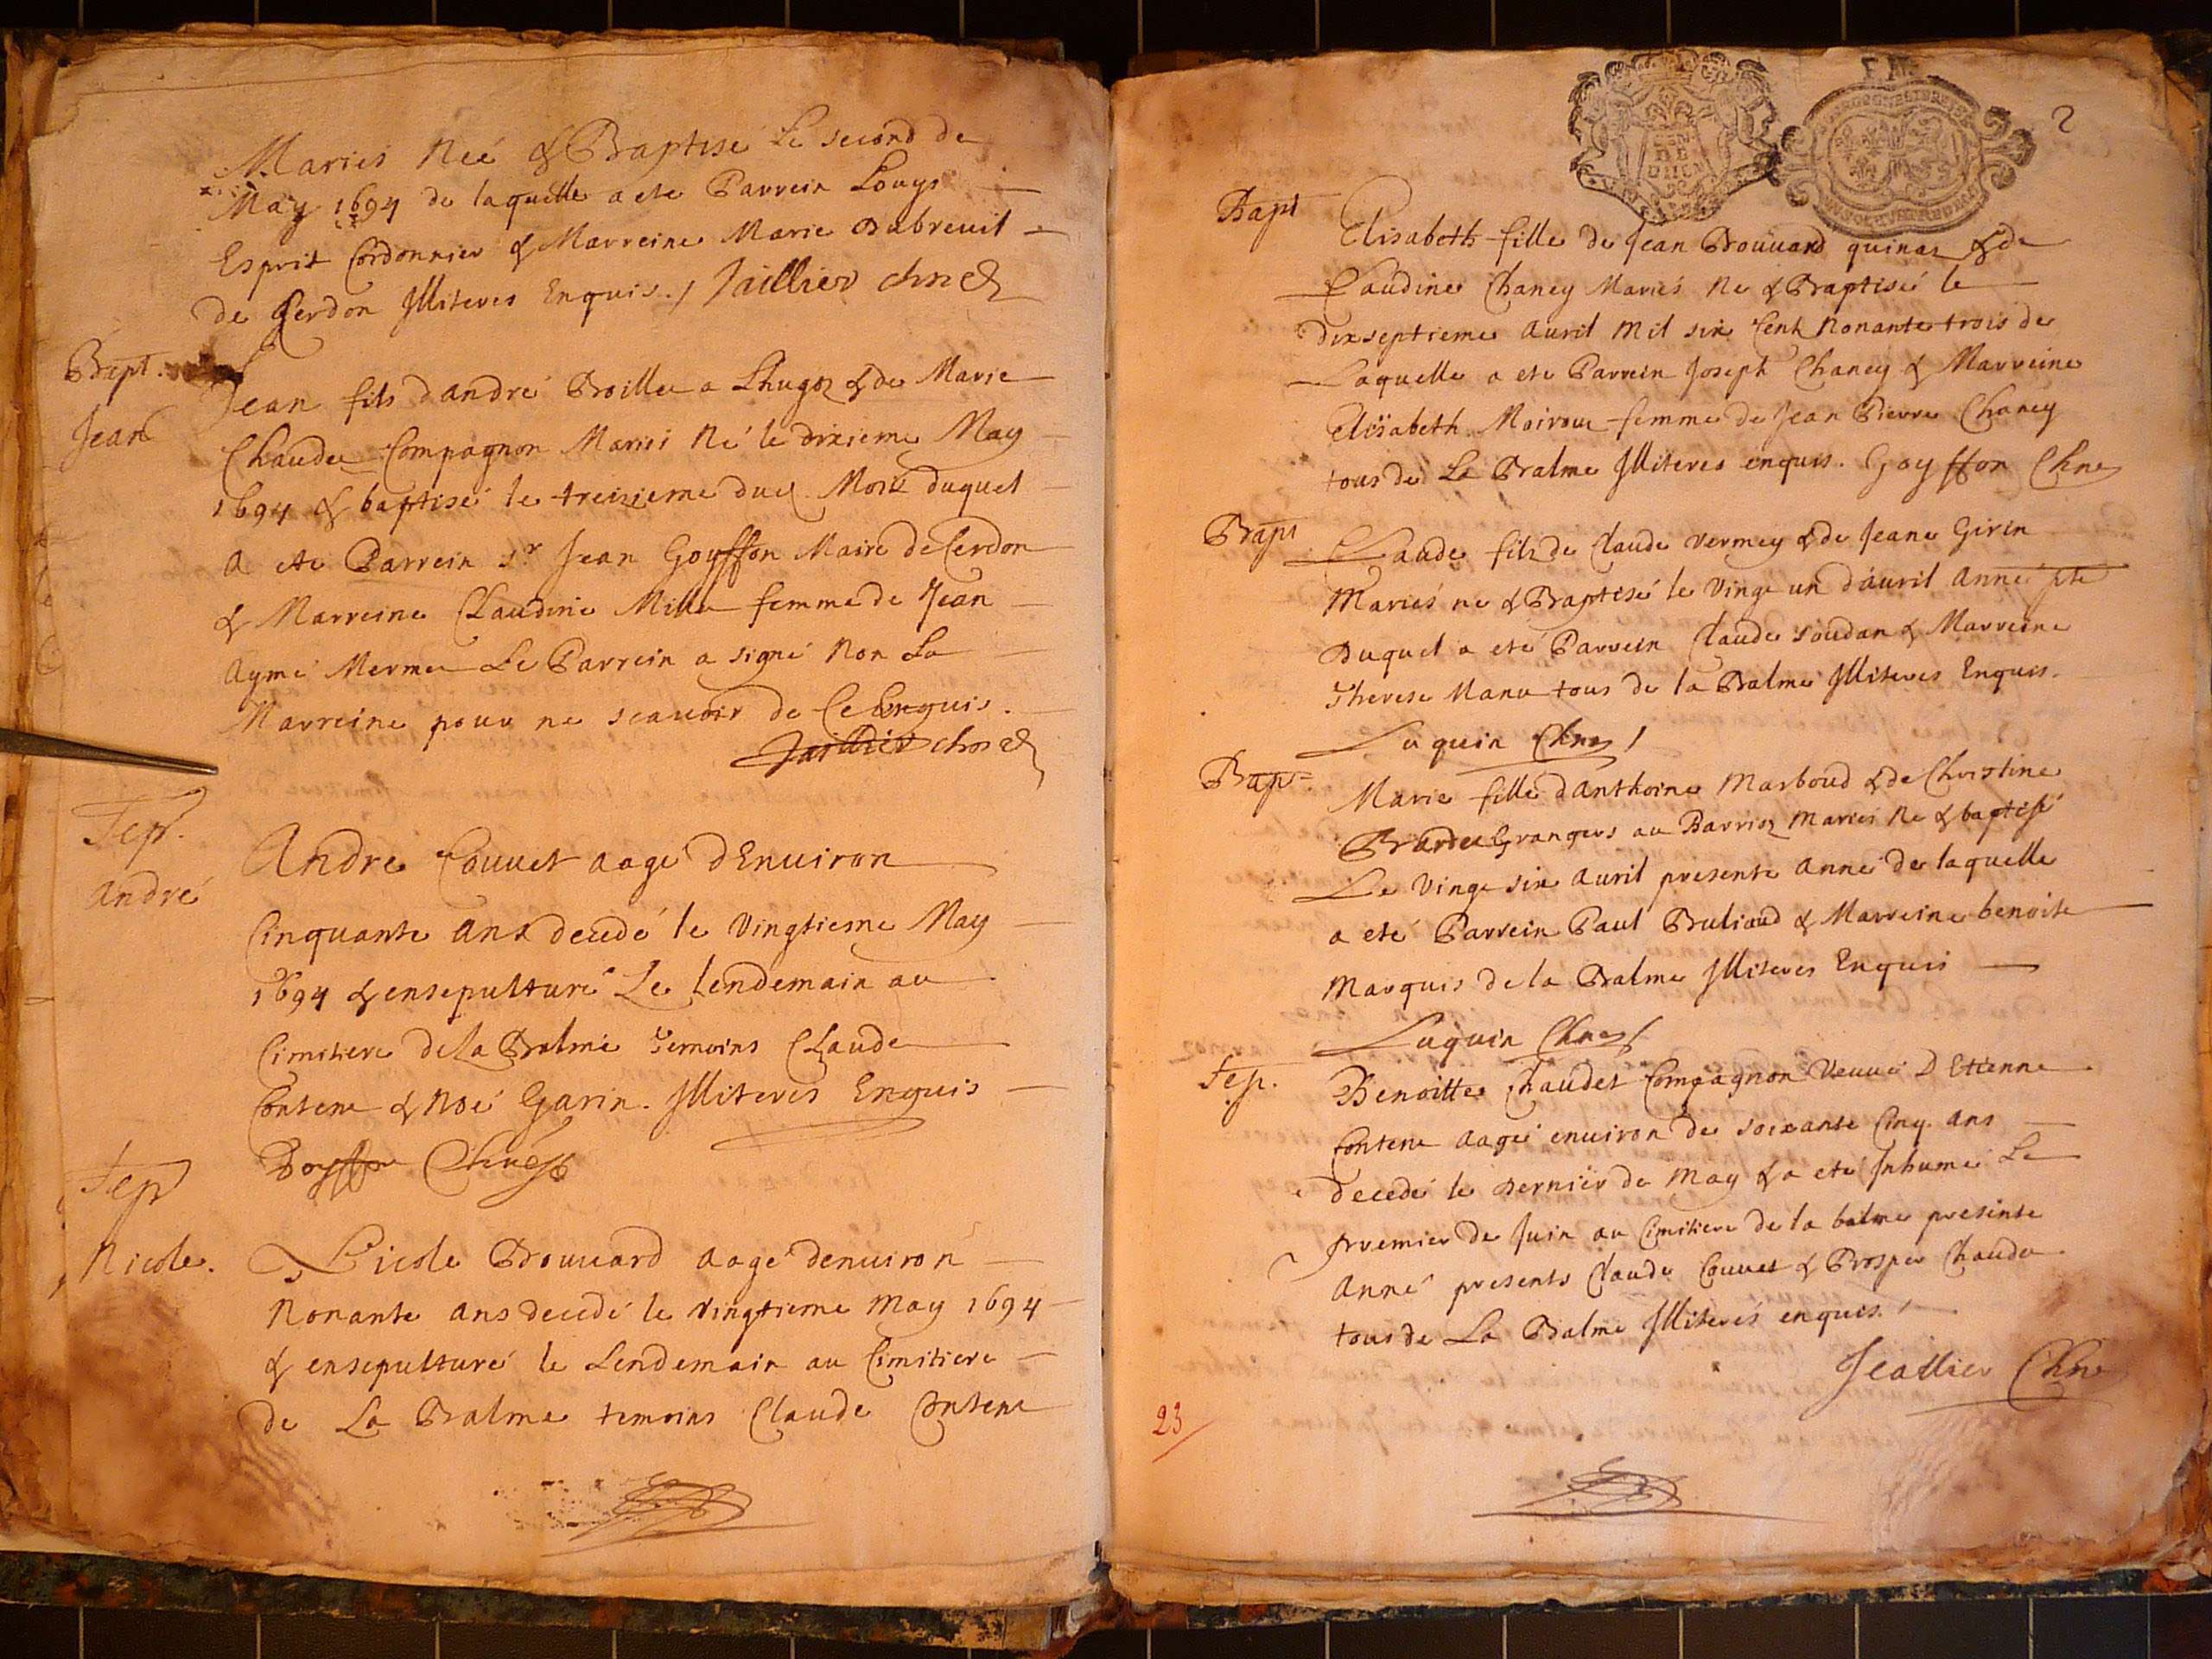 Mariés Neé & Baptisé Le second de
May 1694 de laquelle a ete Parrein Louys
Esprit Cordonnier & Marreine Marie Dubreuil
de Cerdon Illiteres Enquis. / Jaillier chne
Bapt.
Jean
Jean fils d'André Boillee a & de Marie
Chaudee Compagnon Mariés Né le dixieme May
1694 & baptisé le treisieme dud. Mois duquel
a ete Parrein sr. Jean Goyffon Maire de Cerdon
& Marreine Claudine Mille femme de Jean
Aymé Mermee Le Parrein a signé Non La
Marreine pour ne scauoir de Ce Enquis.
Jaillier chne
Sep.
André
Andre Couuet aagé dEnuiron
Cinquante ans decedé le Vingtiesme May
1694 & ensepulturé Le Lendemain au
Cimitiere de La Balme Temoins Claude
Contene & Noé Garin. Illiteres Enquis
Chne
Sep
Nicole.
Nicole Bouuard aagé denuiron
Nonante ans decedé le Vingtieme May 1694
& ensepulturé le Lendemain au Cimitiere
de La Balme temoins Claude Contene
2
Bapt
Elisabeth fille de Jean Bouuard quinaz & de
Claudine Chaney Mariés Né & Baptisé le
dixseptieme auril mil six Cent Nonante trois de
Laquelle a ete Parrein Joseph Chaney & Marreine
Elisabeth Moiroux femme de Jean Pierre Chaney
tous de La Balme Illiteres enquis. Goyffon Chne
Bapt
Claude fils de Claude Vermey & de Jeane Girin
Mariés né & Baptisé le Vingt un d'auril anné pte
Duquel a eté Parrein Claude Soudan & Marreine
Therese Manu tous de la Balme Illiteres Enquis.
Luquin Chne /
Bap
Marie fille dAnthoine Marboud & de Christine
Grangers au Barrioz Mariés Né & baptisé
Le Vingt six auril presente anné de laquelle
a eté Parrein Paul Buliaud & Marreine benoite
Marquis de la Balme Illiteres Enquis
Luquin Chne /
Sep.
Benoitte Chaudet Compagnon Veuue D Etienne
Contene aagé enuiron de soixante Cinq ans
decedé le Dernier de May & a eté Inhumé Le
premier de Juin au Cimitiere de la balme presente
Anné presents Claude Couuet & Prosper Chaudee
tous de La Balme Illiterés enquis. /
Jeallier Chne
23